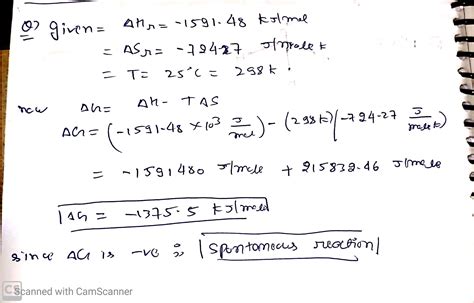 Q) given = ΔHn = -1591.48 kJ/mol
= ΔSn = -794.27 J/mole k
= T = 25°C = 298k.
now ΔG = ΔH - TΔS
ΔG = (-1591.48 × 10³ J/mol) - (298k)(-794.27 J/mole k)
= -1591480 J/mole + 215838.46 J/mole
ΔG = -1375.5 kJ/mole
since ΔG is -ve ∴ spontaneous reaction
CS Scanned with CamScanner